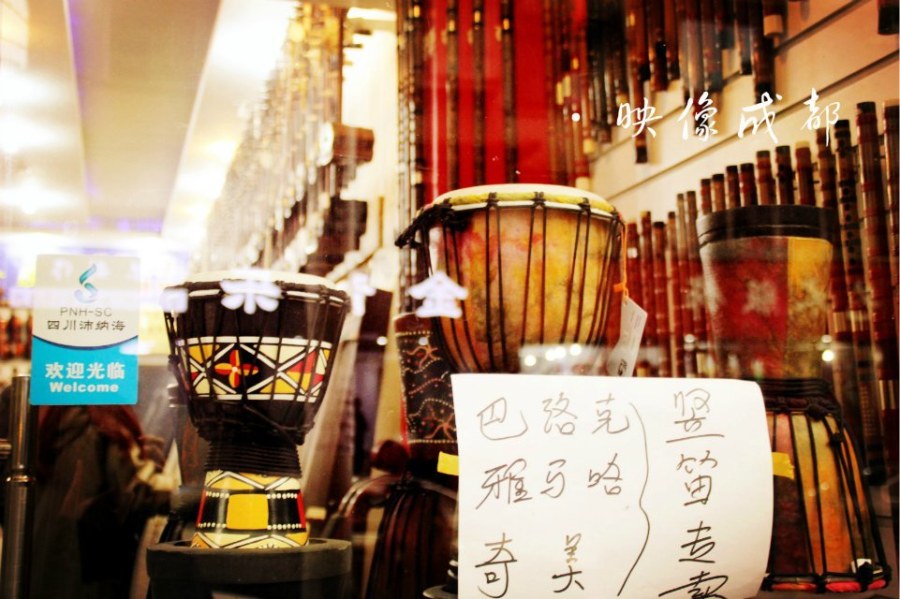 ·映像成都
PNH-SC
四川沛纳海
欢迎光临
Welcome
巴洛克
雅马哈
奇美
竖笛专卖